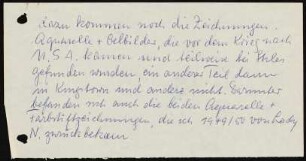 dazu kommen noch die Zeichnungen,
Aquarelle + Oelbilder, die vor dem Krieg nach
U.S.A. kamen und teilweise bei
gefunden wurden, ein anderer Teil dann
in Kingstown und andere nicht. Darunter
befanden sich auch die beiden Aquarelle +
Farbstiftzeichnungen, die ich 1949/50 von Lady
N. zurückbekam.